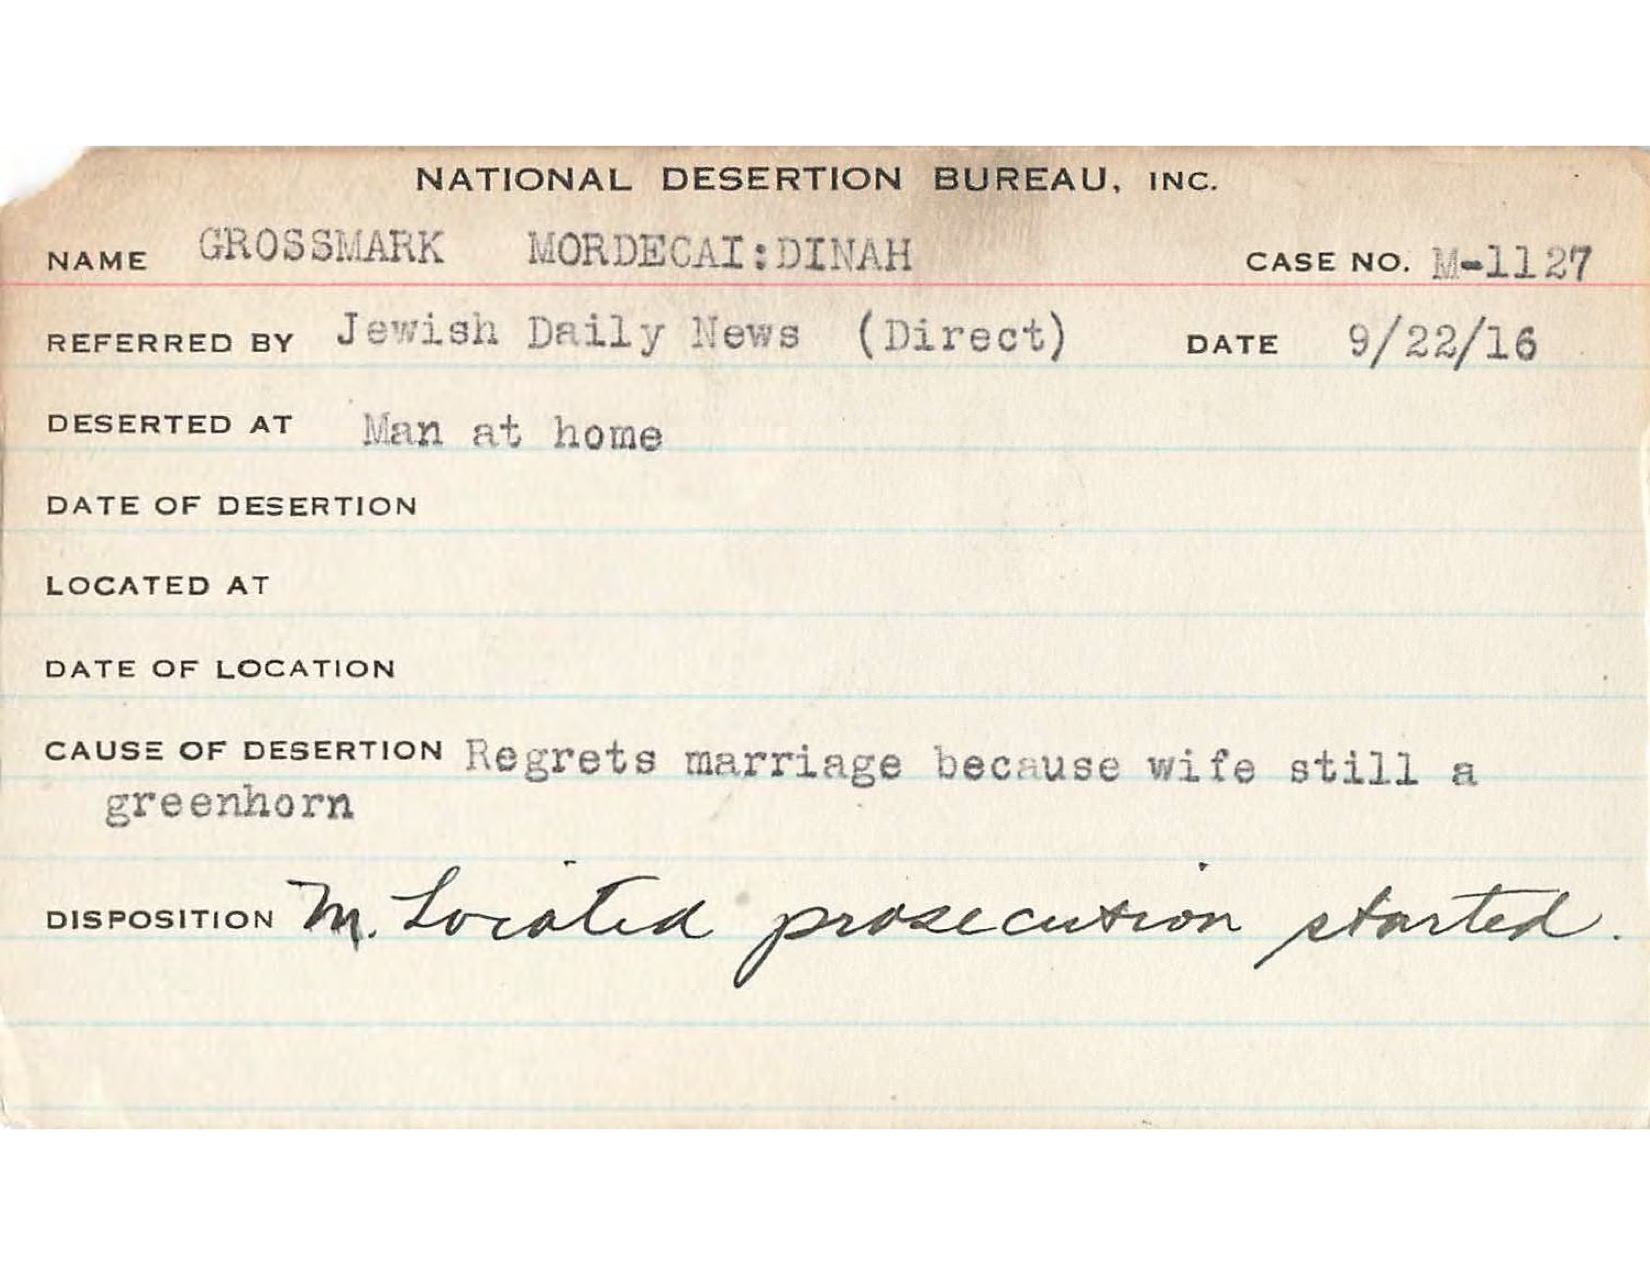 NATIONAL DESERTION BUREAU, INC.
NAME GROSSMARK MORDECAI:DINAH CASE NO. M-1127
REFERRED BY Jewish Daily News (Direct) DATE 9/22/16
DESERTED AT Man at home
DATE OF DESERTION
LOCATED AT
DATE OF LOCATION
CAUSE OF DESERTION Regrets marriage because wife still a
greenhorn
DISPOSITION M. Located prosecution started.